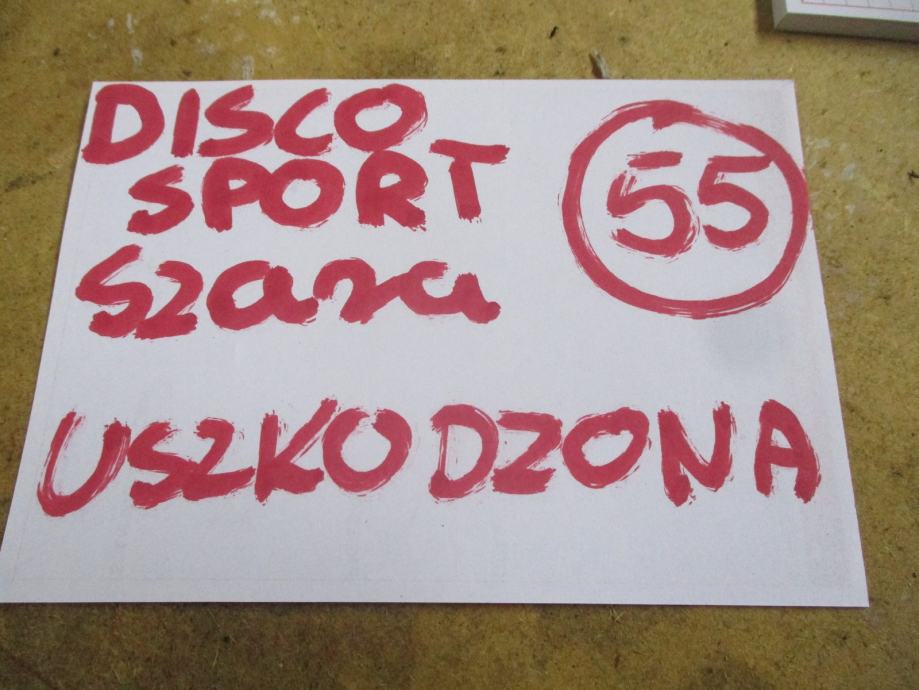 DISCO
SPORT
55
Szara
USZKODZONA